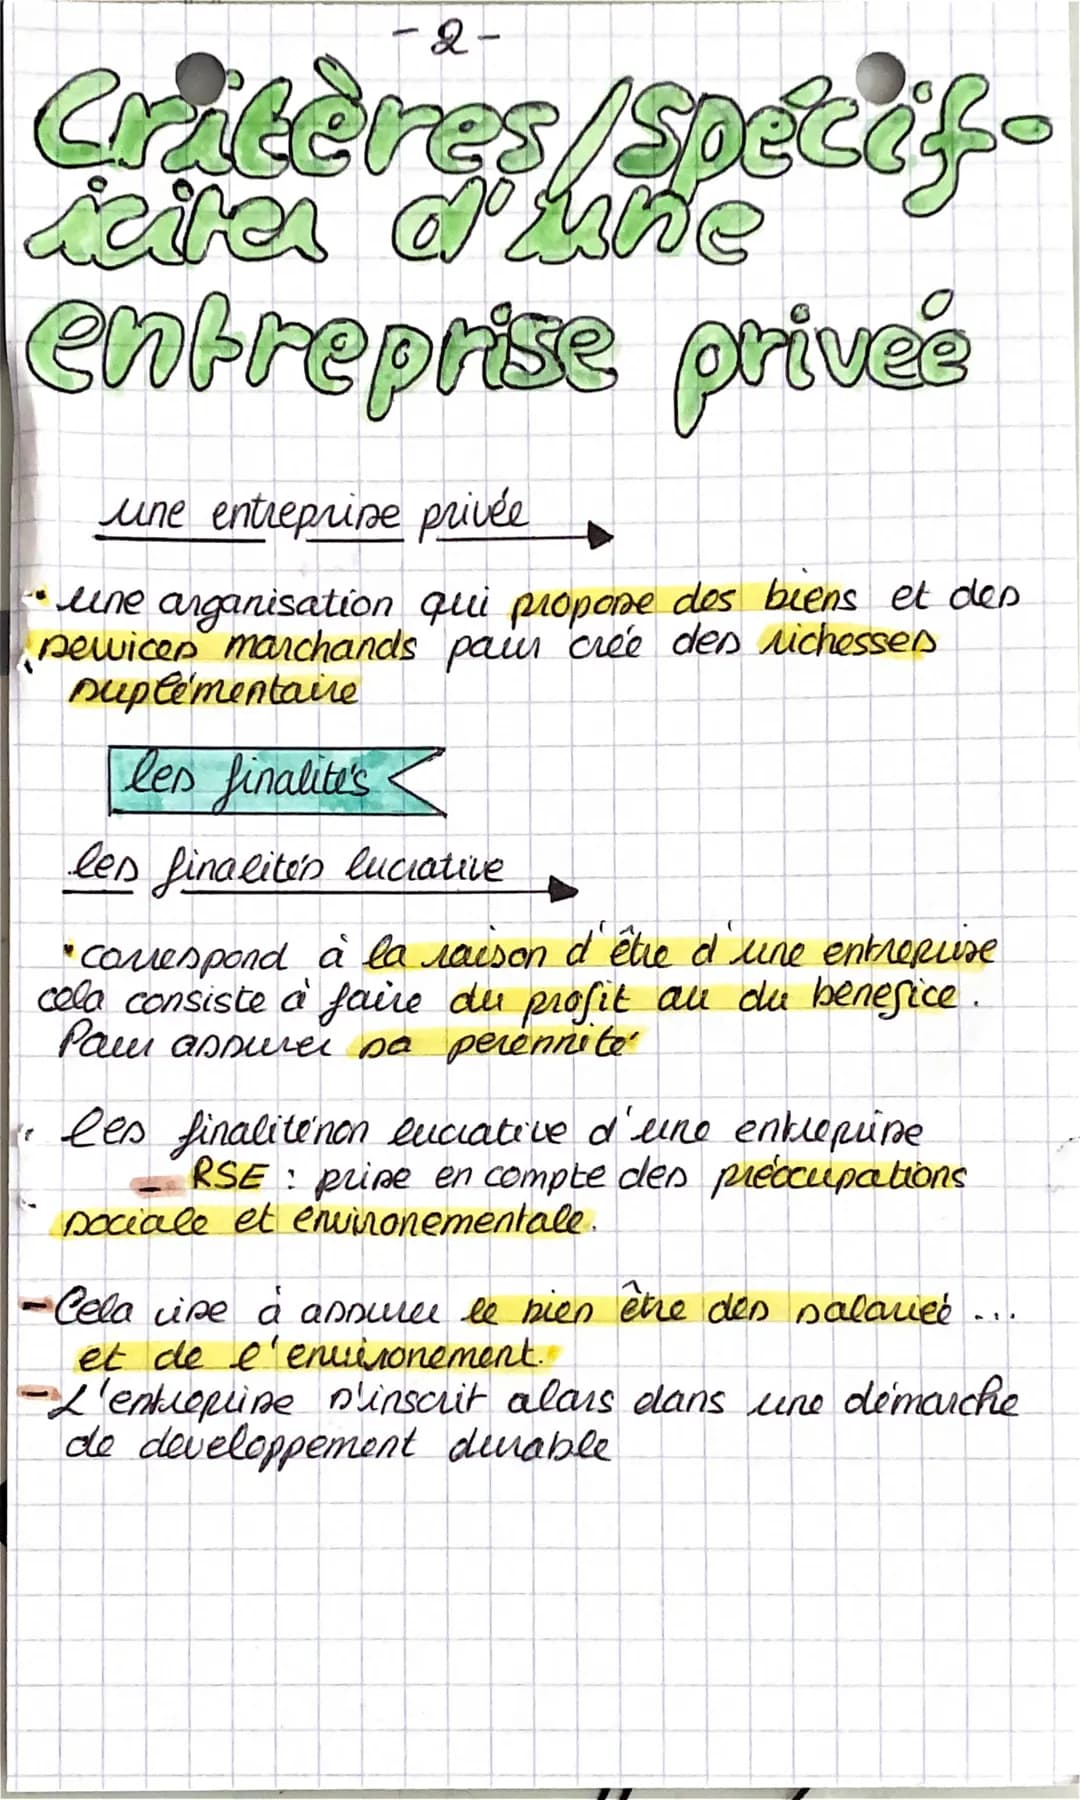 - 2 -
Critères/spécif-
icités d'une
entreprise priveé
une entreprise privée
• une organisation qui propose des biens et des
services marchands pour crée des richesses
suplémentaire
les finalités
les finalités lucrative
• correspond à la raison d'être d'une entreprise
cela consiste à faire du profit ou du benefice.
Pour assurer sa perennité
les finalité non lucrative d'une entreprise
- RSE : prise en compte des préoccupations
sociale et environementale.
- Cela vise à assurer le bien être des salarieé ...
et de l'environement.
- L'entreprise s'inscrit alors dans une démarche
de developpement durable